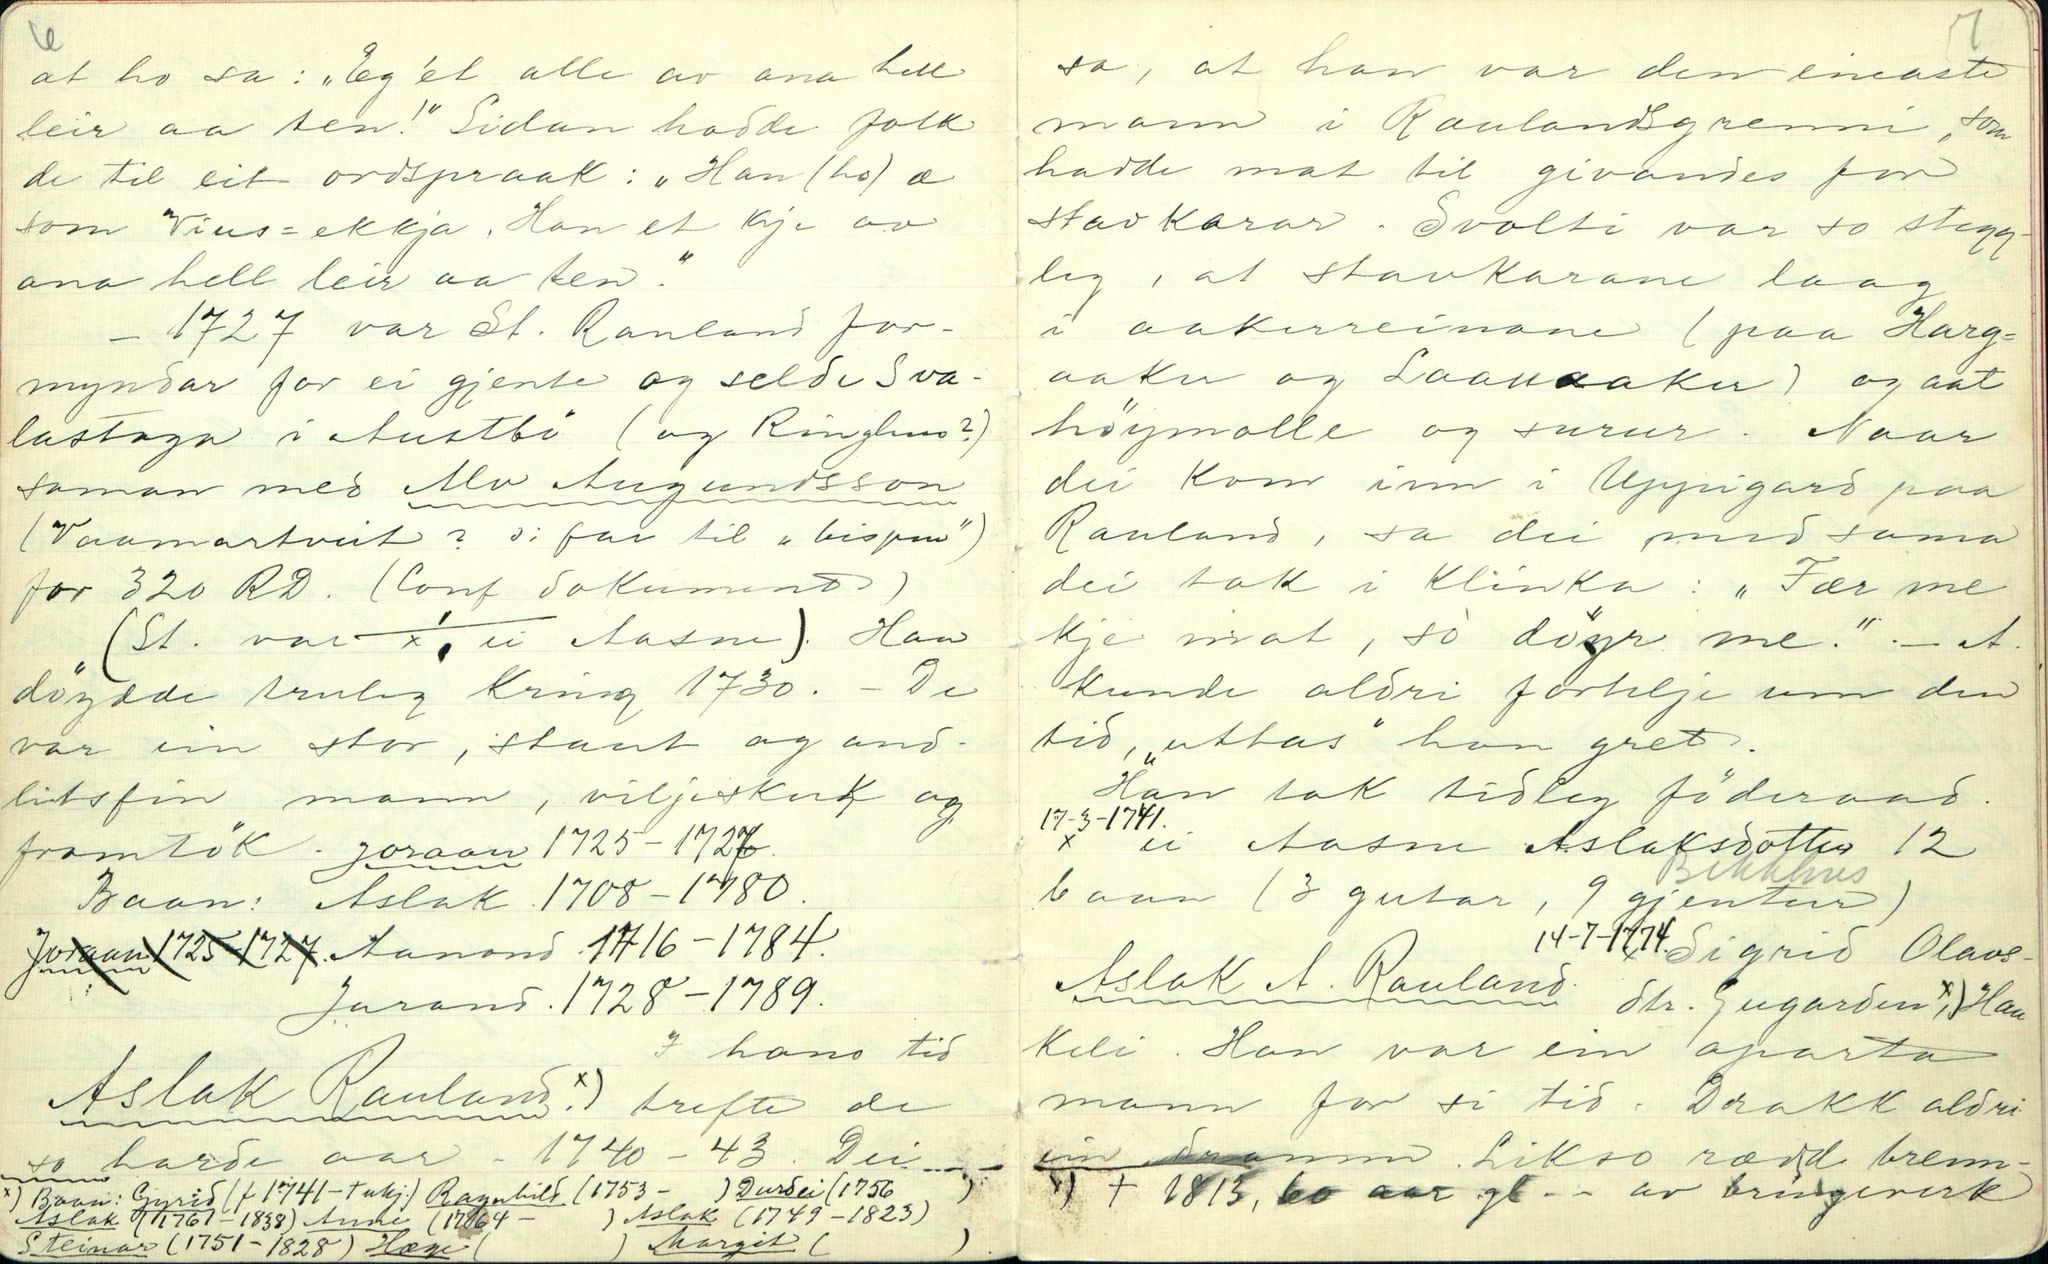 6
at ho sa: „Eg 'et alle av ana hell
leir aa ten!" Sidan hadde folk
de til eit ordspraak: „Han (ho) æ
som Vius=ekkja. Han et kje av
ana hell leir aa ten."
– 1727 var St. Rauland for-
myndar for ei gjente og selde Sva-
lastoga i Austbö (og Ringhus?)
saman med Alv Augundsson
(Vaamartveit? ɔ: far til „bispen")
for 320 RD. (Conf dokument)
(St. var x, ei Aasne). Han
döydde truleg kring 1730. – De
var ein stor, staut og and-
litsfin mann, viljesterk og
framtök. Joraan 1725–1727.
Baan: Aslak 1708–1780.
Joraan 1725–1727. Aanond 1716–1784.
Jorand. 1728–1789.
I hans tid
Aslak Rauland.x) trefte de
so harde aar – 1740–43. Dei
x) Baan: Gyrid (f 1741– † ukj.) Ragnhild (1753– ) Durdei (1756 )
Aslak (1761–1838) Anne (1764– ) Aslak (1749–1823)
Steinar (1751–1828) Hæge ( ) Margit ( )
7
sa, at han var den einaste
mann i Raulandsgrenni, som
hadde mat til givandes for
stavkarar. Svolti var so stygg-
leg, at stavkarane laag
i aakerreinane (paa Harg=
aaker og Laanaaker) og aat
höymolle og surur. Naar
dei kom inn i Uppigard paa
Rauland, sa dei med sama
dei tok i klinka: „Fær me
kje mat, so döyr me." – A.
kunde aldri fortelje um den
tid, „uttas" han gret.
Han tok tidleg föderaad.
17-3-1741.
x ei Aasne Aslaksdotter 12
Bekkhus
baan (3 gutar, 9 gjentur)
14-7-1774. x Sigrid Olavs-
Aslak A. Rauland. dtr. Gugarden x), Hau
keli. Han var ein aparta
mann for si tid. Drakk aldri
ein dramm. Likso rædd brenn-
x) † 1813, 60 aar gl – – av bringeverk